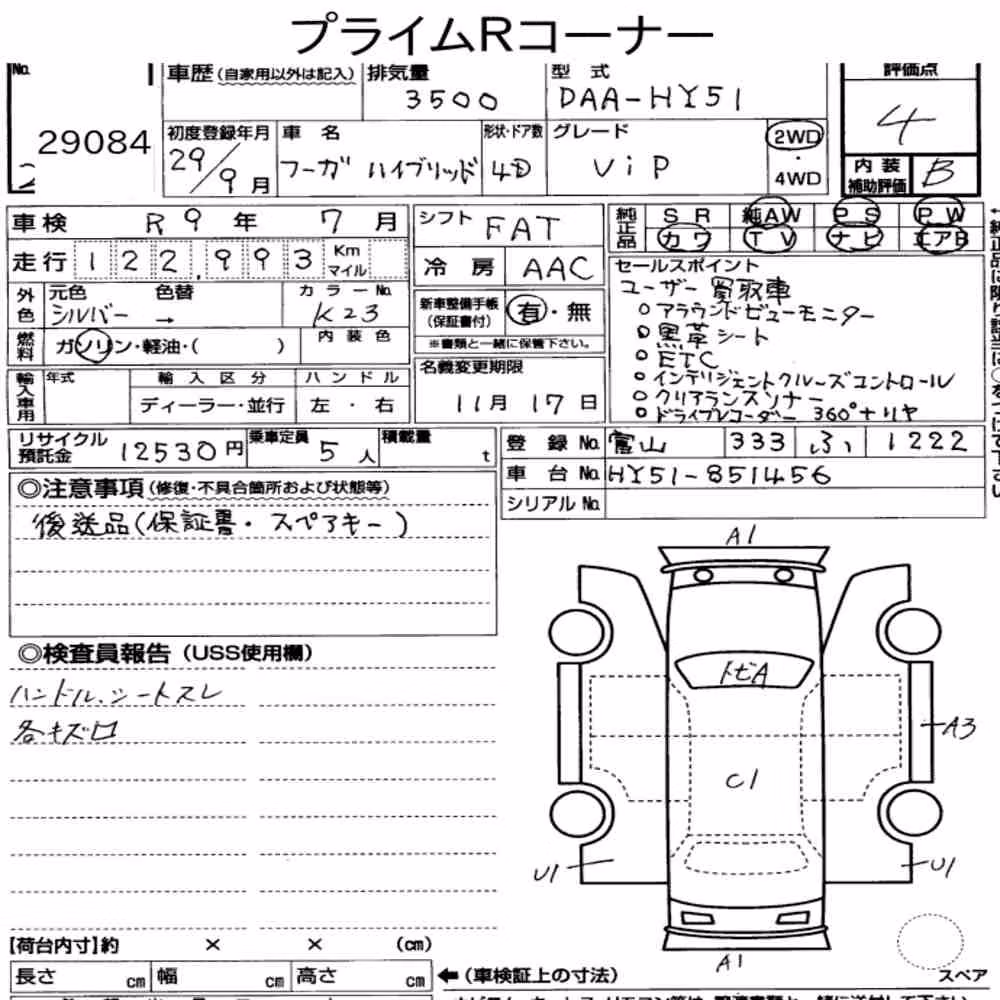 プライムRコーナー
No. 29084
車歴(自家用以外は記入)
排気量 3500
型式 DAA-HY51
評価点 4
初度登録年月 29/9月
車名 フーガ ハイブリッド
形状・ドア数 4D
グレード ViP
2WD・4WD
内装補助評価 B
車検 R9年 7月
走行 122,993 Km マイル
外色 元色 シルバー 色替 →
カラーNo. K23
燃料 ガソリン・軽油・( )
内装色
輸入車用 年式 輸入区分 ハンドル
ディーラー・並行 左・右
シフト FAT
冷房 AAC
新車整備手帳(保証書付) 有・無
※書類と一緒に保管下さい。
名義変更期限
11月 17日
純正品 SR 純AW PS PW
カワ TV ナビ エアB
セールスポイント
ユーザー買取車
○アラウンドビューモニター
○黒革シート
○ETC
○インテリジェントクルーズコントロール
○クリアランスソナー
○ドライブレコーダー 360°+リヤ
リサイクル預託金 12530円
乗車定員 5人
積載量 t
登録No. 富山 333 ふ 1222
車台No. HY51-851456
シリアルNo.
◎注意事項(修復・不具合箇所および状態等)
後送品(保証書・スペアキー)
◎検査員報告(USS使用欄)
ハンドル、シートスレ
各キズ凹
A1
トビA
A3
C1
U1
U1
A1
スペア
【荷台内寸】約 × × (cm)
長さ cm 幅 cm 高さ cm
←(車検証上の寸法)